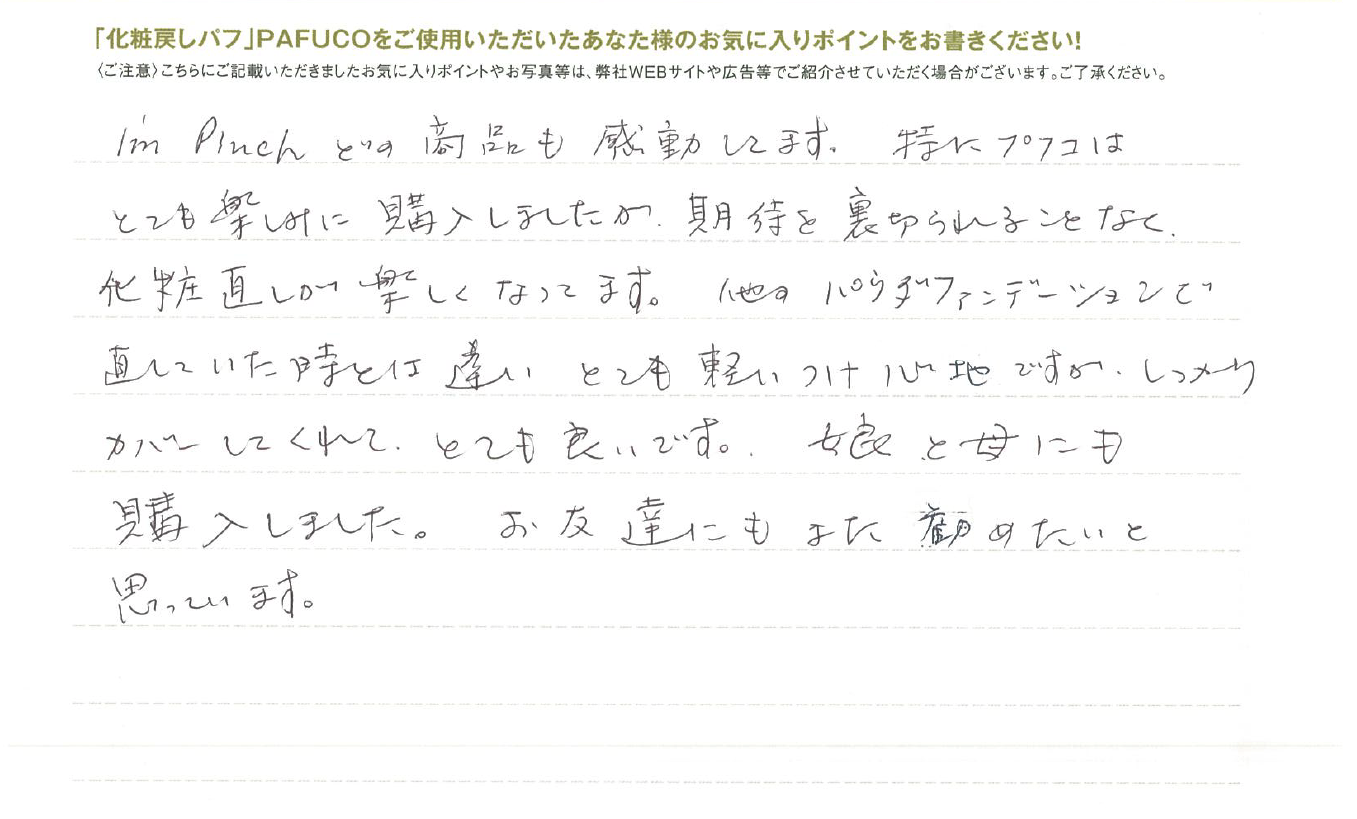 「化粧戻しパフ」PAFUCOをご使用いただいたあなた様のお気に入りポイントをお書きください!
〈ご注意〉こちらにご記載いただきましたお気に入りポイントやお写真等は、弊社WEBサイトや広告等でご紹介させていただく場合がございます。ご了承ください。
I'm Pinch どの商品も感動してます. 特にプフコは
とても楽しみに購入しましたが. 期待を裏切られることなく.
化粧直しが楽しくなってます。 他のパウダファンデーションで
直していた時とは違い とても軽いつけ心地ですが. しっかり
カバーしてくれて. とても良いです。. 娘と母にも
購入しました。 お友達にもまた勧めたいと
思っています。